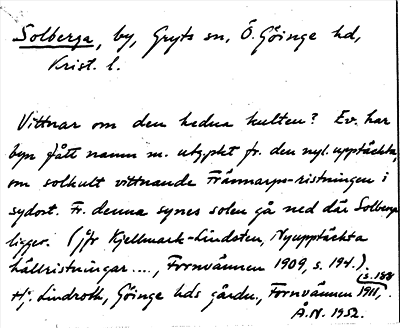 Solberga, by, Gryts sn, Ö. Göinge hd,
Krist. l.
Vittnar om den hedna kulten? Ev. har
byn fått namn m. utgpkt fr. den nyl. upptäckta,
om solkult vittnande Frännarps-ristningen i
sydost. Fr. denna synes solen gå ned där Solberga
ligger. (jfr Kjellmark-Lindsten, Nyupptäckta
hällristningar ..., Fornvännen 1909, s. 194.).
Hj. Lindroth, Göinge hds gårdu, Fornvännen 1911, s. 188
Å.N. 1952.